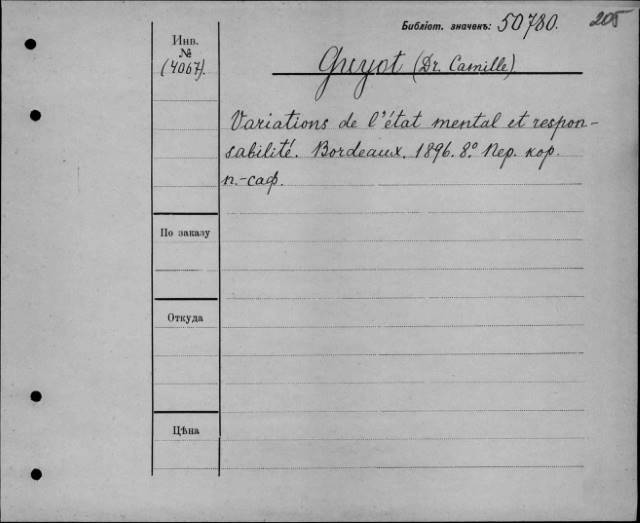 Библіот. значекъ: 50780. 205
Инв.
№
(4067).
Guyot (Dr. Camille)
Variations de l'état mental et respon-
sabilité. Bordeaux. 1896. 8.° Пер. кор.
п.-саф.
По заказу
Откуда
Цѣна